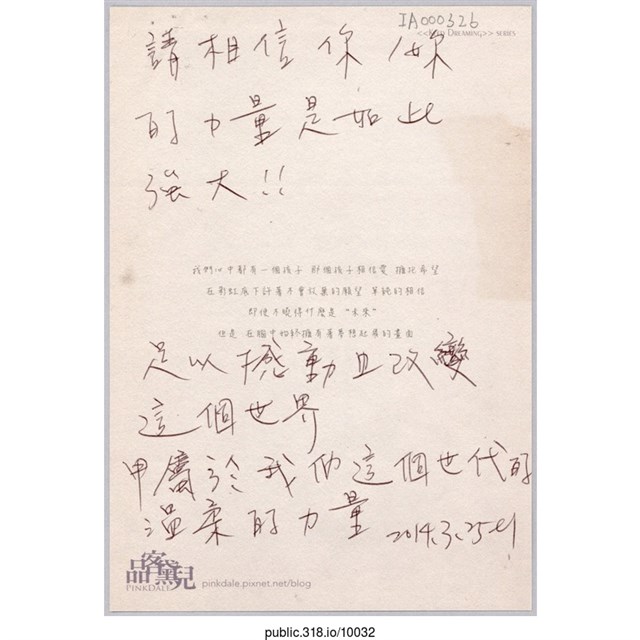 IA000326
DREAMING>> SERIES
請相信你/妳
的力量是如此
強大!!
我們心中都有一個孩子 那個孩子相信愛 擁抱希望
在彩虹底下許著不會放棄的願望 單純的相信
即使不曉得什麼是 "未來"
但是 在腦中始終擁有著夢想起飛的畫面
足以撼動且改變
這個世界
屬於我們這個世代的
溫柔的力量 2014.3.25
品客黛兒
PINKDALE
pinkdale.pixnet.net/blog
public.318.io/10032